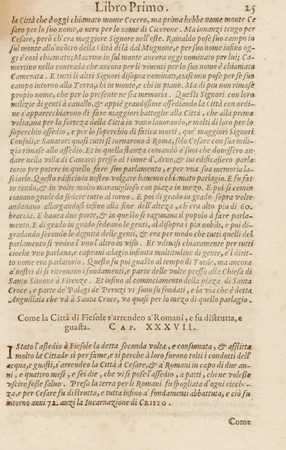 Libro Primo. 25
la Città che hoggi chiamato monte Cecero, ma prima hebbe nome monte Ce
saro per lo suo nome, o vero per lo nome di Cicerone. Ma innanzi tengo per
Cesare, però ch'era maggiore Signore nell'oste. Rinaldo pose suo campo in
sul monte allo'ncontro della Città di là dal Mugnone, e per suo nome infino og
gi è così chiamato; Macrino in sul monte ancora oggi nominato per lui; Ca
merino nella contrada che ancora per tutti i viventi per lo suo nome è chiamata
Camerata. E tutti li altri Signori disopra nominati, ciascuno pose per se suo
campo intorno alla Terra, chi in monte, e chi in piano. Ma di piu non rimase
proprio nome, che per lo presente ne sia memoria. Quelli Signori con loro
milizie di genti à cavallo, & appiè grandissime assediando la Città con ordi-
ne s'apparecchiarono di fare maggiori battaglie alla Città, che alla prima
volta, ma per la fortezza della Città in vano lavorano, e molti di loro per lo
soperchio assedio, e per lo soperchio di fatica morti, que maggiori Signori
Consoli, e Sanatori quasi tutti si tornarono à Roma, solo Cesare con sua mili-
zia rimase allo assedio. Et in quella stanza comandò a suoi che dovessero an-
dare nella villa di Camarti presso al Fiume d'Arno, & ivi edificassero parla-
torio per potere in quello fare suo parlamento, e per una sua memoria la-
sciarlo. Questo edificio in nostro volgare havemo chiamato parlagio. E fu fat
to tondo, & in volte molto maraviglioso con piazza in mezo. E poi si comin-
ciavano gradi da sedere tutto al torno. E poi di grado in grado sopra volte
andavano allargandosi infino alla fine dell'altezza, ch'era alto piu di 60.
braccia. E haveva due porte, & in questo si ragunava il popolo à fare parla-
mento. E di grado in grado sedeano le genti, al disopra i piu nobili, e poi di-
gradando secondo la dignità delle genti, & era per modo che tutti quelli del
parlamento si vedea l'uno l'altro in viso. Et udivasi chiaramente per tutti
ciò che uno parlava, e capeavi adagio infinita moltitudine di gente, e'l dirit-
to nome era parlatorio. Questo fu poi guasto al tempo di Totile, ma ancora
a' nostri dì si ritruovano i fondamenti, e parte delle volte presso alla Chiesa di
Santo Simone à Firenze. Et infino al cominciamento della piazza di Santa
Croce, e parte de' Palagi de' Peruzzi vi sono su fondati, e la via che è detta
Anguillaia che và à Santa Croce, va quasi per lo mezo di quello parlagio.
Come la Città di Fiesole s'arrendeo a' Romani, e fu distrutta, e
guasta. CAP. XXXVII.
I Stato l'assedio à Fiesole la detta seconda volta, e consumata, & afflitta
molto la Cittade sì per fame, e sì perche à loro furono tolti i condotti dell'
acqua, e guasti, s'arrendeo la Città à Cesare, & a' Romani in capo di due an-
ni, e quattro mesi, e sei dìe, che vi si pose l'assedio, a patti, che ne volesse
uscire fosse salvo. Presa la terra per li Romani fu spogliata d'ogni ricchez-
za, e per Cesare fu distrutta, e tutta infino a' fondamenti abbattuta, e ciò fu
intorno anni 72. anzi la Incarnazione di CRISTO.
Come